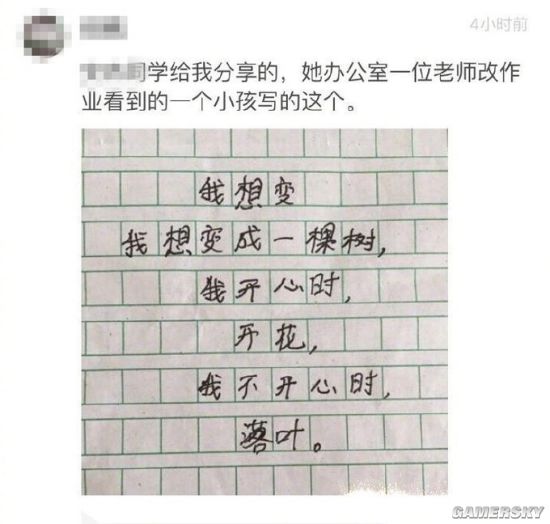 4小时前
同学给我分享的，她办公室一位老师改作
业看到的一个小孩写的这个。
我想变
我想变成一棵树，
我开心时，
开花，
我不开心时，
落叶。
GAMERSKY